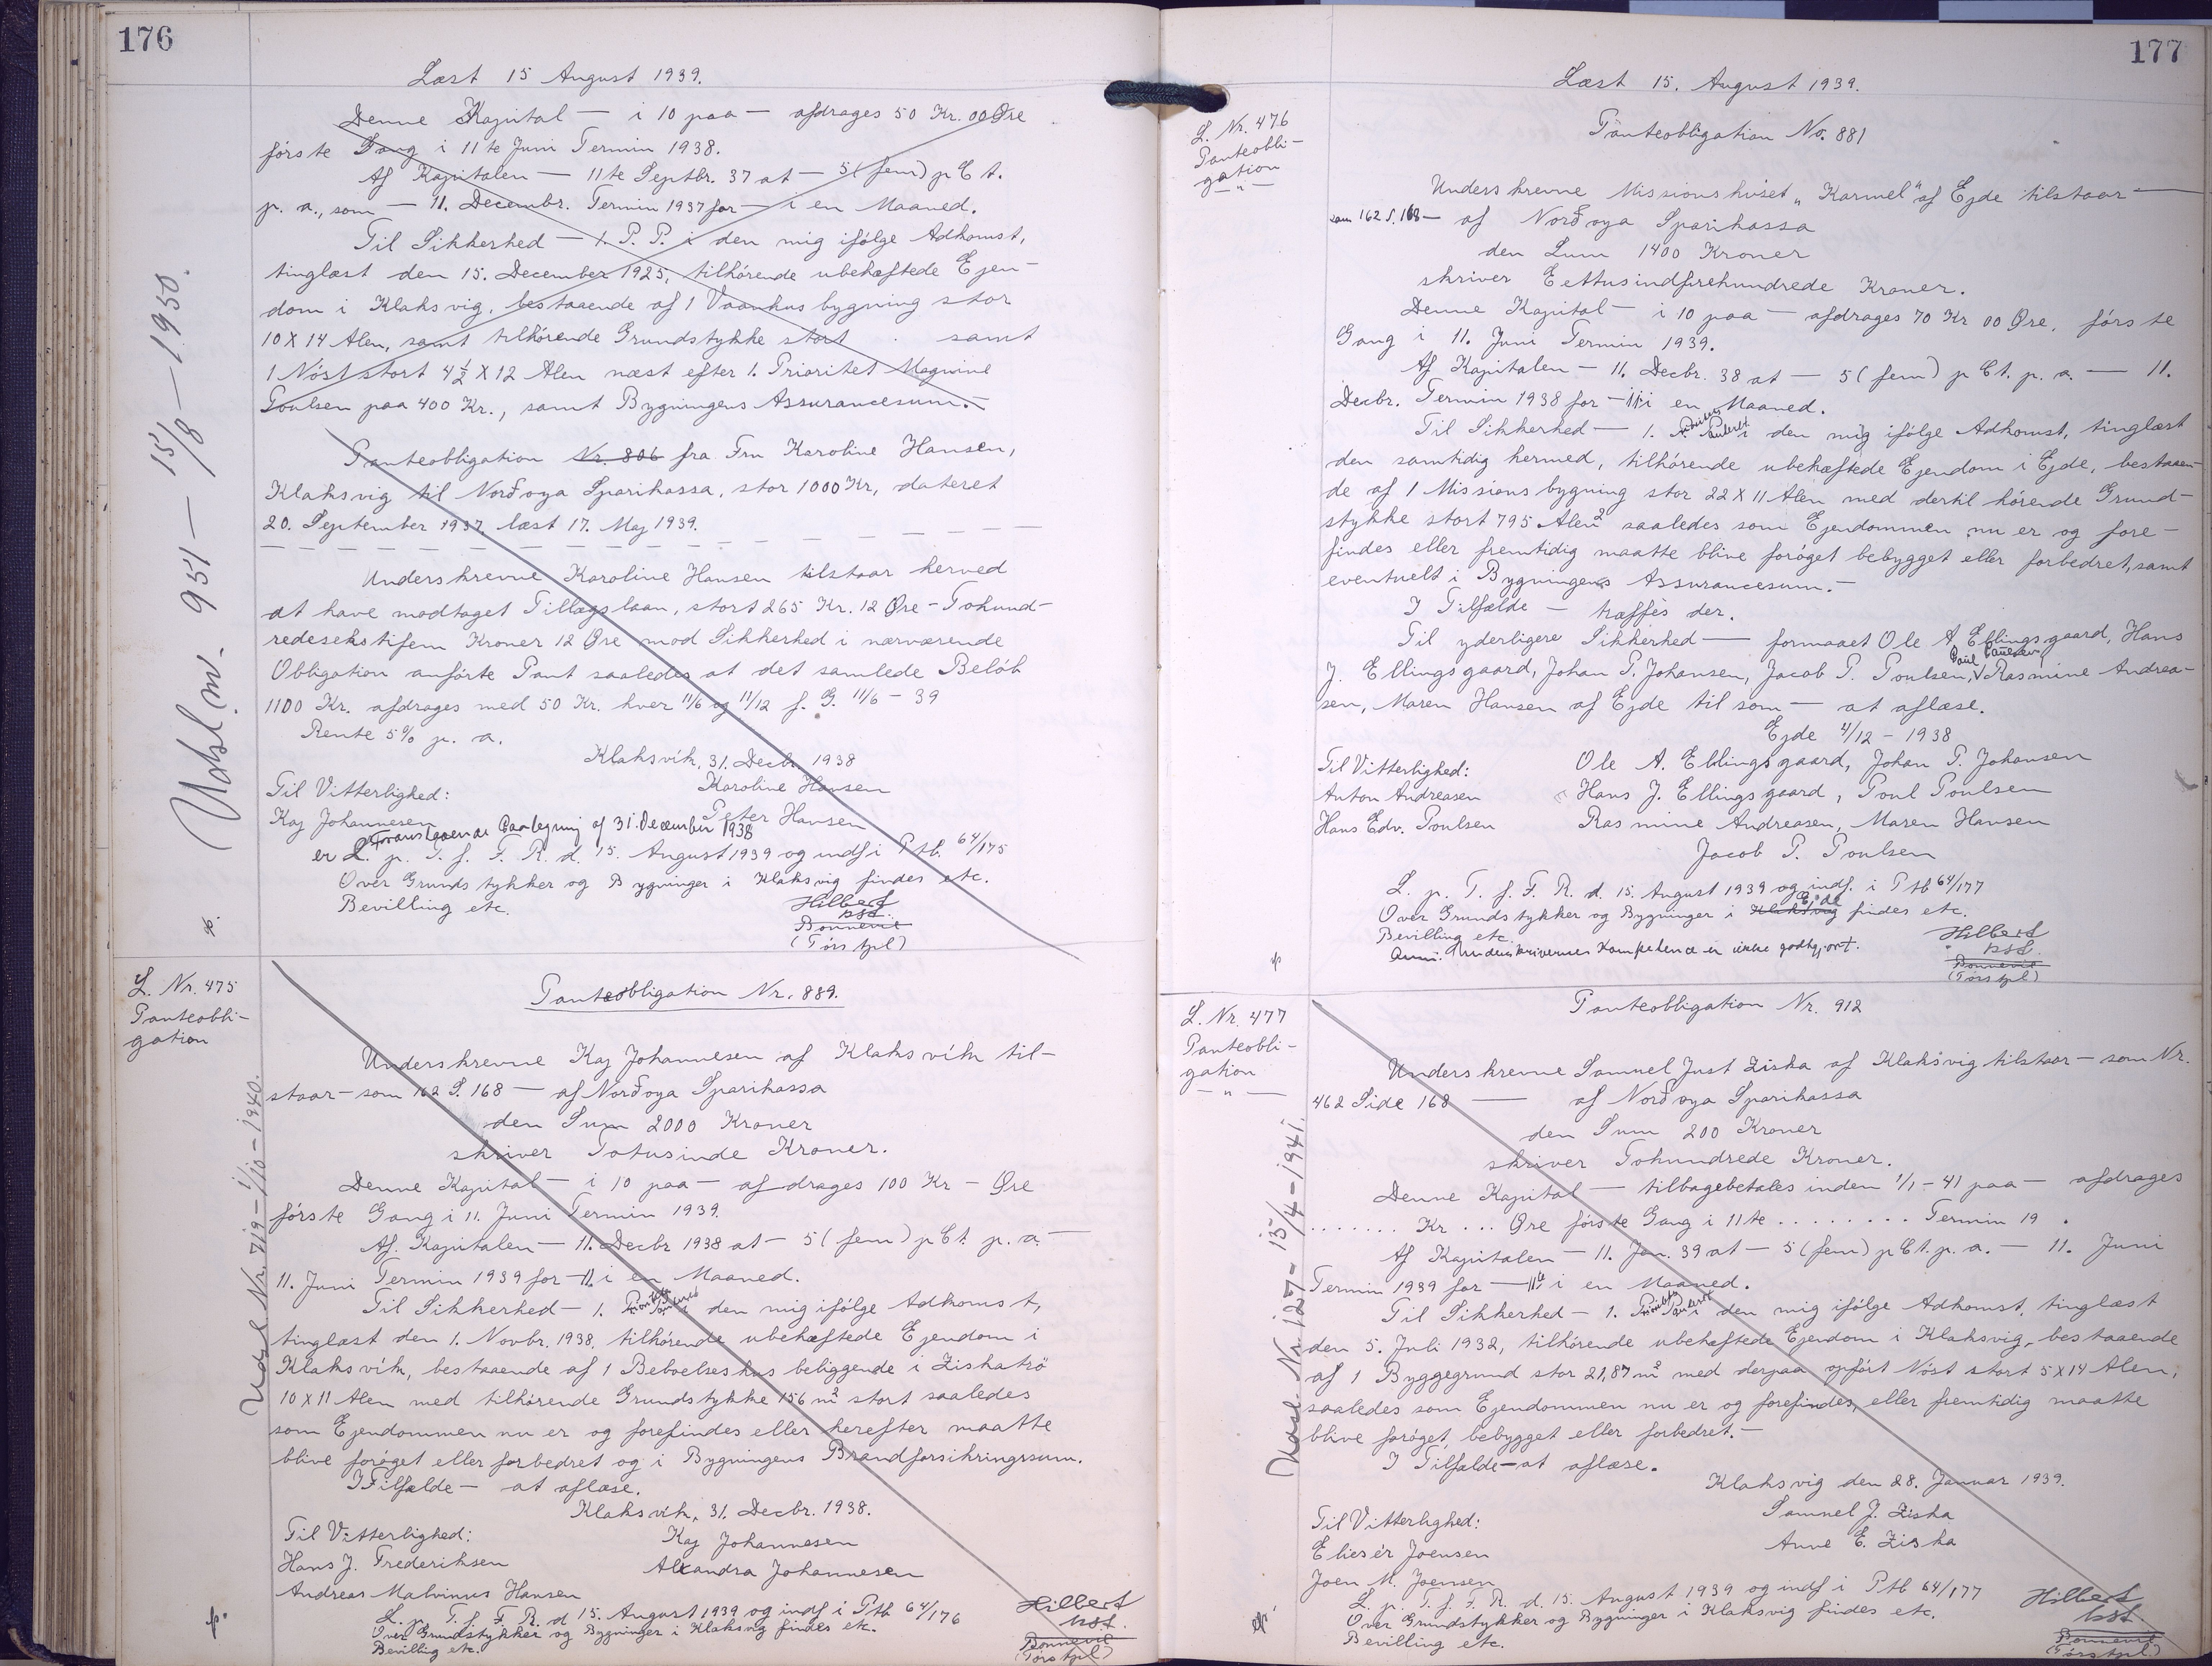 176
Læst 15 August 1939.
Denne Kapital — i 10 paa — afdrages 50 Kr. 00 Øre
förste Gang i 11te Juni Termin 1938.
Af Kapitalen — 11te Septbr. 37 at — 5 (fem) p Ct.
p. a., som — 11. Decembr. Termin 1937 for — i en Maaned.
Til Sikkerhed — 1. P. P. i den mig ifölge Adkomst,
tinglæst den 15. December 1925, tilhörende ubehæftede Ejen-
dom i Klaksvig, bestaaende af 1 Vaanhusbygning stor
10 X 14 Alen, samt tilhörende Grundstykke stort . samt
1 Nöst stort 4½ X 12 Alen næst efter 1. Prioritet Magnine
Poulsen paa 400 Kr., samt Bygningens Assurancesum.-
Panteobligation Nr. 806 fra Fru Karoline Hansen,
Klaksvig til Norðoya Sparikassa, stor 1000 Kr, dateret
20. September 1937, læst 17. Maj 1939.
Underskrevne Karoline Hansen tilstaar herved
at have modtaget Tillægslaan, stort 265 Kr. 12 Øre - Tohund-
redesekstifem Kroner 12 Øre mod Sikkerhed i nærværende
Obligation anförte Pant saaledes at det samlede Belöb
1100 Kr. afdrages med 50 Kr. hver 11/6 og 11/12 f. G. 11/6 - 39
Rente 5% p. a.
Klaksvík, 31. Decbr. 1938
Til Vitterlighed: Karoline Hansen
Kaj Johannesen Peter Hansen
Foranstaaende Paategning af 31. December 1938
er L. p. T. f. F. R. d. 15. August 1939 og indf i Ptb. 64/175
Over Grundstykker og Bygninger i Klaksvig findes etc.
Bevilling etc.
Hilbert
kst.
Bonnevie
(Törs tpl)
Udsl. m. 951 — 15/8 — 1950.
L. Nr. 475
Panteobli-
gation
Panteobligation Nr. 889.
Underskrevne Kaj Johannesen af Klaksvík til-
staar — som 162 S. 168 — af Norðoya Sparikassa
den Sum 2000 Kroner
skriver Totusinde Kroner.
Denne Kapital — i 10 paa — afdrages 100 Kr - Øre
förste Gang i 11. Juni Termin 1939.
Af. Kapitalen — 11. Decbr 1938 at — 5 (fem) p Ct. p. a. —
11. Juni Termin 1939 for — 11. i en Maaned.
Til Sikkerhed — 1. Prioritets Panteret i den mig ifölge Adkomst,
tinglæst den 1. Novbr. 1938, tilhörende ubehæftede Ejendom i
Klaksvík, bestaaende af 1 Beboelseshus beliggende i Ziskatrö
10 X 11 Alen med tilhörende Grundstykke 156 m² stort saaledes
som Ejendommen nu er og forefindes eller herefter maatte
blive foröget eller forbedret og i Bygningens Brandforsikringssum.
I Tilfælde — at aflæse.
Klaksvík, 31. Decbr. 1938.
Til Vitterlighed: Kaj Johannesen
Hans J. Frederiksen Alxandra Johannesen
Andreas Malvinus Hansen
L. p. T. f. F. R. d. 15. August 1939 og indf i Ptb 64/176
Over Grundstykker og Bygninger i Klaksvig findes etc.
Bevilling etc.
Hilbert
kst.
Bonnevie
(Törs tpl)
Udsl Nr. 719 — 1/10 — 1940.
177
Læst 15. August 1939.
L. Nr. 476
Panteobli-
gation
— " —
Panteobligation No. 881
Underskrevne Missionshuset „Karmel" af Ejde tilstaar —
som 162 S. 168 — af Norðoya Sparikassa
den Sum 1400 Kroner
skriver Eettusindfirehundrede Kroner.
Denne Kapital — i 10 paa — afdrages 70 Kr 00 Øre, förste
Gang i 11. Juni Termin 1939.
Af Kapitalen — 11. Decbr. 38 at — 5 (fem) p Ct. p. a. — 11.
Decbr. Termin 1938 for — 11. i en Maaned.
Til Sikkerhed — 1. Prioritets Panteret i den mig ifölge Adkomst, tinglæst
den samtidig hermed, tilhörende ubehæftede Ejendom i Ejde, bestaaen-
de af 1 Missionsbygning stor 22 X 11 Alen med dertil hörende Grund-
stykke stort 795 Alen² saaledes som Ejendommen nu er og fore-
findes eller fremtidig maatte blive foröget bebygget eller forbedret, samt
eventuelt i Bygningens Assurancesum.-
I Tilfælde — træffes der.
Til yderligere Sikkerhed — formaaet Ole A Ellingsgaard, Hans
J. Ellingsgaard, Johan P. Johansen, Jacob P. Poulsen, Paul Paulsen Rasmine Andrea-
sen, Maren Hansen af Ejde til som — at aflæse.
Ejde 4/12 - 1938
Til Vitterlighed: Ole A. Ellingsgaard, Johan P. Johansen
Anton Andreasen Hans J. Ellingsgaard, Poul Poulsen
Hans Edv. Poulsen Rasmine Andreasen, Maren Hansen
Jacob P. Poulsen
L. p. T. f. F. R. d. 15. August 1939 og indf. i Ptb 64/177
Over Grundstykker og Bygninger i Klaksvig Ejde findes etc.
Bevilling etc.
Anm. Underskrivernes Kompetence er ikke godtgjort.
Hilbert
kst.
Bonnevie
(Törs tpl)
L. Nr. 477
Panteobli-
gation
— " —
Panteobligation Nr. 912
Underskrevne Samuel Just Ziska af Klaksvig tilstaar — som Nr.
462 Side 168 — af Norðoya Sparikassa
den Sum 200 Kroner
skriver Tohundrede Kroner.
Denne Kapital — tilbagebetales inden 1/1 - 41 paa — afdrages
....... Kr ... Øre förste Gang i 11te ........ Termin 19 .
Af Kapitalen — 11. Jan. 39 at — 5 (fem) p Ct. p. a. — 11. Juni
Termin 1939 for — 11te i en Maaned.
Til Sikkerhed — 1. Prioritets Panteret i den mig ifölge Adkomst, tinglæst
den 5. Juli 1932, tilhörende ubehæftede Ejendom i Klaksvig, bestaaende
af 1 Byggegrund stor 21,87 m² med derpaa opfört Nöst stort 5 x 14 Alen,
saaledes som Ejendommen nu er og forefindes, eller fremtidig maatte
blive foröget, bebygget eller forbedret.-
I Tilfælde — at aflæse.
Klaksvig den 28. Januar 1939.
Til Vitterlighed: Samuel J. Ziska
Eliesér Joensen Anne E. Ziska
Joen M. Joensen
L. p. T. f. F. R. d. 15. August 1939 og indf i Ptb 64/177
Over Grundstykker og Bygninger i Klaksvig findes etc.
Bevilling etc.
Hilbert
kst.
Bonnevie
(Törs tpl.)
Udsl. Nr. 127 — 15/4 — 1941.